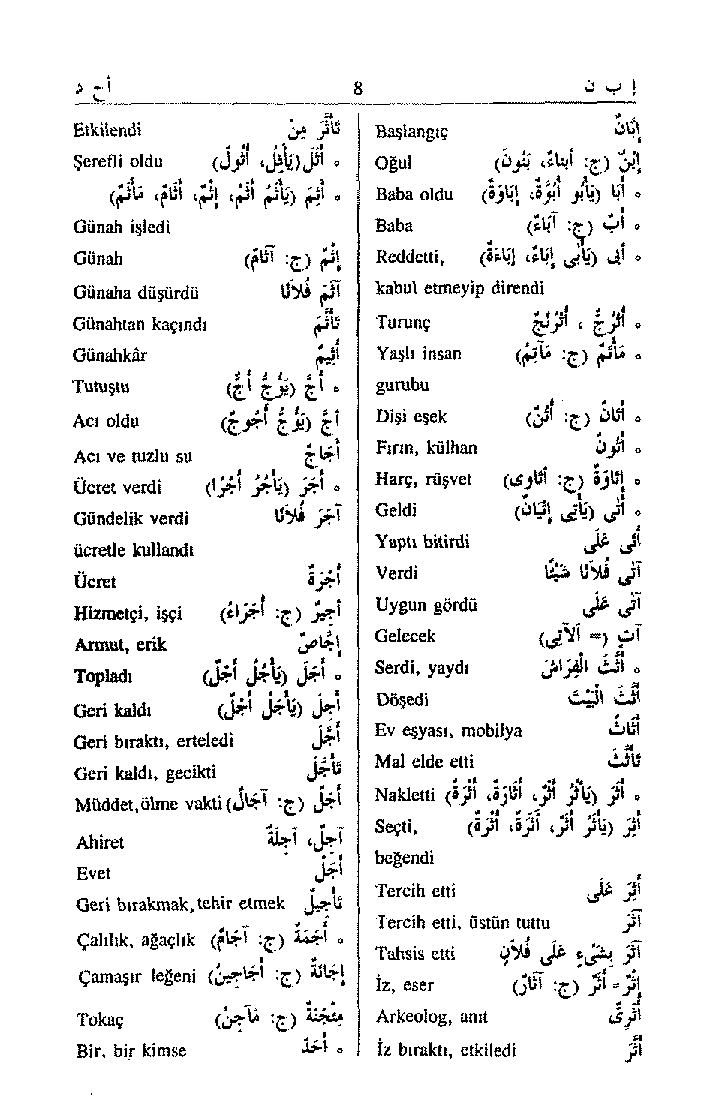 إ ب ن 8 أ ح د
Başlangıç إِبَّانٌ
Oğul إِبْنٌ (ج: أَبْنَاءٌ، بَنُونَ)
Baba oldu ٥ أَبَا (يَأْبُو أُبُوَّةً، إِبَاوَةً)
Baba ٥ أَبٌ (ج: آبَاءٌ)
Reddetti, ٥ أَبَى (يَأْبَى إِبَاءً، إِبَاءَةً)
kabul etmeyip direndi
Turunç ٥ أُتْرُجٌّ ، أُتْرُنْجٌ
Yaşlı insan ٥ مَأْتَمٌ (ج: مَآتِمُ)
gurubu
Dişi eşek ٥ أَتَانٌ (ج: أُتُنٌ)
Fırın, külhan ٥ أَتُونٌ
Harç, rüşvet ٥ إِتَاوَةٌ (ج: أَتَاوَى)
Geldi ٥ أَتَى (يَأْتِى إِتْيَانٌ)
Yaptı bitirdi أَتَى عَلَى
Verdi آتَى فُلاَنًا شَيْئًا
Uygun gördü آتَى عَلَى
Gelecek آتٍ (= اَلْآتِى)
Serdi, yaydı ٥ أَثَّثَ الْفِرَاشَ
Döşedi أَثَّثَ الْبَيْتَ
Ev eşyası, mobilya أَثَاثٌ
Mal elde etti تَأَثَّثَ
Nakletti ٥ أَثَرَ (يَأْثُرُ أَثْرٌ، أَثَارَةً، أُثْرَةً)
Seçti, أَثِرَ (يَأْثَرُ أَثَرٌ، أَثَرَةً، أُثْرَةً)
beğendi
Tercih etti أَثِرَ عَلَى
Tercih etti, üstün tuttu آثَرَ
Tahsis etti آثَرَ بِشَيْءٍ عَلَى فُلاَنٍ
İz, eser إِثْرٌ = أَثَرٌ (ج: آثَارٌ)
Arkeolog, anıt أَثَرِىٌّ
İz bıraktı, etkiledi أَثَّرَ
Etkilendi تَأَثَّرَ مِنْ
Şerefli oldu ٥ أَثَلَ (يَأْثِلُ، أُثُولٌ)
٥ أَثِمَ (يَأْثَمُ أَثَمٌ، إِثْمٌ، أَثَامٌ، مَأْثَمٌ)
Günah işledi
Günah إِثْمٌ (ج: آثَامٌ)
Günaha düşürdü آثَمَ فُلاَنًا
Günahtan kaçındı تَأَثَّمَ
Günahkâr أَثِيمٌ
Tutuştu ٥ أَجَّ (يَؤُجُّ أَجٌّ)
Acı oldu أَجَّ (يَؤُجُّ أُجُوجٌ)
Acı ve tuzlu su أُجَاجٌ
Ücret verdi ٥ أَجَرَ (يَأْجُرُ أَجْرًا)
Gündelik verdi آجَرَ فُلاَنًا
ücretle kullandı
Ücret أُجْرَةٌ
Hizmetçi, işçi أَجِيرٌ (ج: أُجَرَاءُ)
Armut, erik إِجَّاصٌ
Topladı ٥ أَجَلَ (يَأْجُلُ أَجْلٌ)
Geri kaldı أَجِلَ (يَأْجَلُ أَجَلٌ)
Geri bıraktı, erteledi أَجَّلَ
Geri kaldı, gecikti تَأَجَّلَ
Müddet,ölme vakti أَجَلٌ (ج: آجَالٌ)
Ahiret آجِلٌ، آجِلَةٌ
Evet أَجَلْ
Geri bırakmak,tehir etmek تَأْجِيلٌ
Çalılık, ağaçlık ٥ أَجَمَةٌ (ج: آجَامٌ)
Çamaşır leğeni إِجَّانَةٌ (ج: أَجَاجِينُ)
Tokaç مِئْجَنَةٌ (ج: مَآجِنُ)
Bir, bir kimse ٥ أَحَدٌ